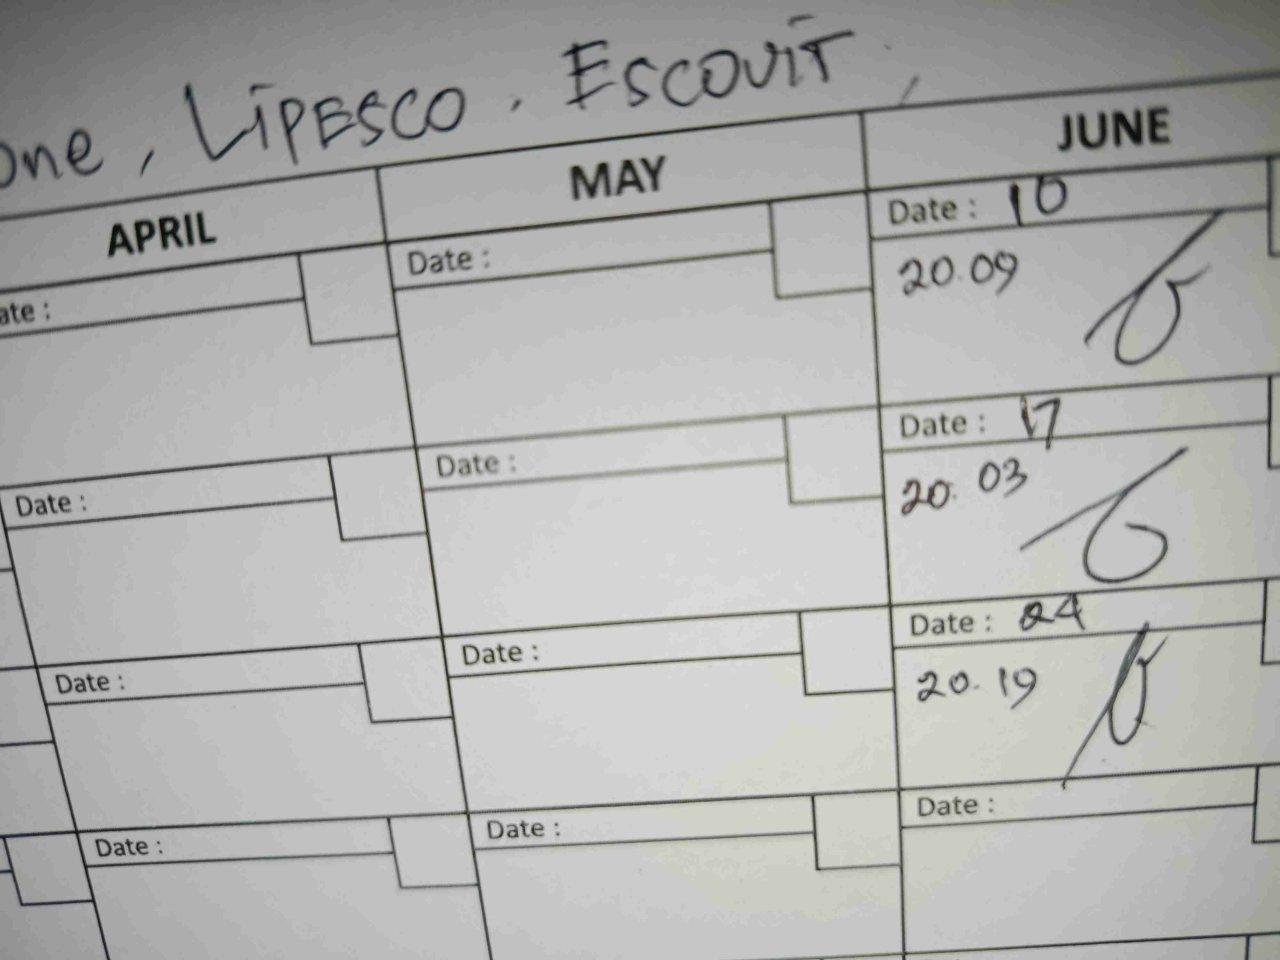 one, LiPESCO, ESCOViT,
APRIL MAY JUNE
ate : Date : Date : 10
20.09
Date : Date : Date : 17
20. 03
Date : Date : Date : 24
20. 19
Date : Date : Date :